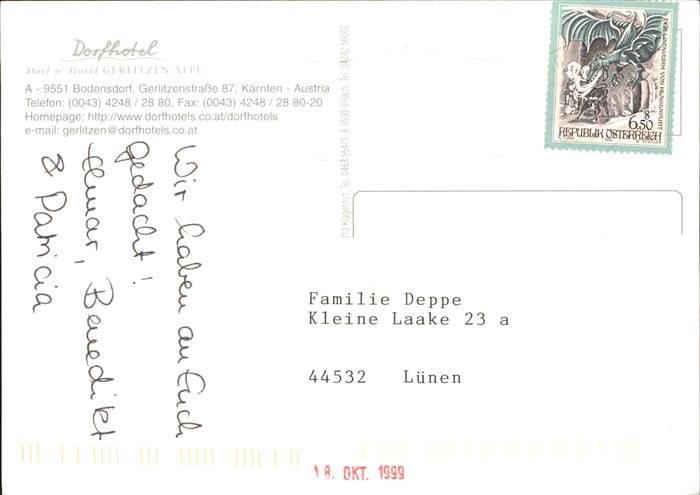 Dorfhotel
Dorf o' Hotel GERLITZEN ALPE
A - 9551 Bodensdorf, Gerlitzenstraße 87, Kärnten - Austria
Telefon: (0043) 4248 / 28 80, Fax: (0043) 4248 / 28 80-20
Homepage: http://www.dorfhotels.co.at/dorfhotels
e-mail: gerlitzen@dorfhotels.co.at
Wir haben an Euch
gedacht!
Elmar, Benedikt
& Patricia
Klagenfurt, Tel. 0463 56475, A 9500 Villach, Tel. 04242 56062
DER LINDWURM VON KLAGENFURT
S
6.50
REPUBLIK ÖSTERREICH
Familie Deppe
Kleine Laake 23 a
44532 Lünen
18. OKT. 1999